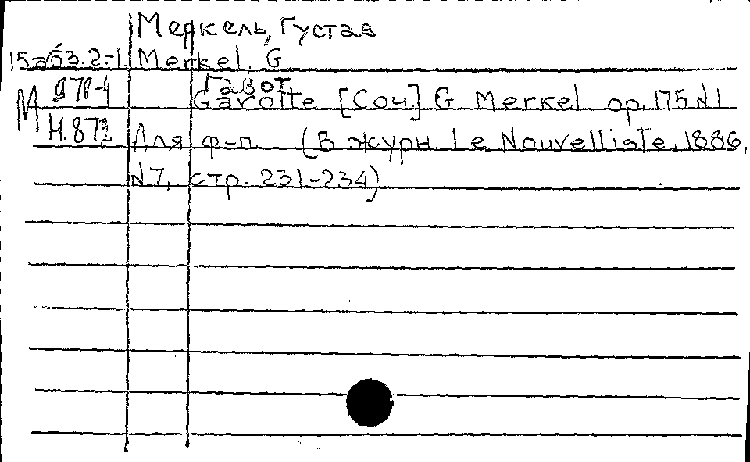 Меркель, Густав
15аб3.2-1 Merkel, G
Гавот
Gavotte [Соч] G Merkel op. 175 №1
М
Н.873 Для ф-п. (В журн Le Nouvelliste, 1886,
№7, стр. 231-234)